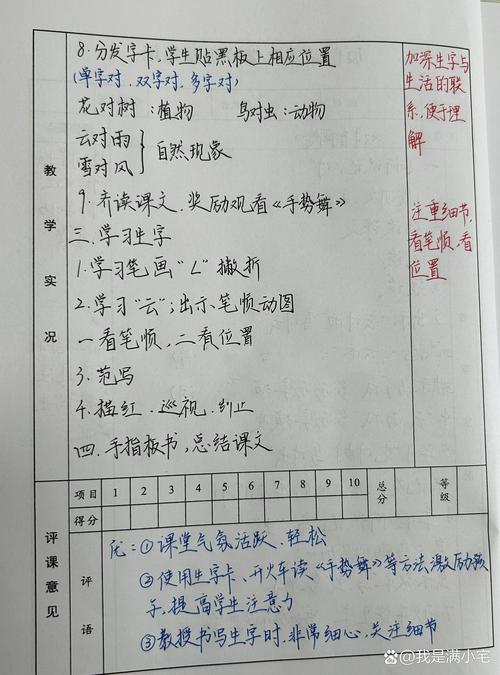 教学实况
8.分发字卡,学生贴黑板上相应位置
(单字对、双字对、多字对)
花对树:植物 鸟对虫:动物
云对雨
雪对风 } 自然现象
9.齐读课文、奖励观看《手势舞》
三.学习生字
1.学习笔画“ㄥ”撇折
2.学习“云”;出示笔顺动图
一看笔顺,二看位置
3.范写
4.描红、巡视、纠正
四.手指板书,总结课文
加深生字与
生活的联
系,便于理
解
注重细节,
看笔顺,看
位置
评课意见
项目 1 2 3 4 5 6 7 8 9 10 总分 等级
得分
评语
优:①课堂气氛活跃、轻松
②使用生字卡、开火车读《手势舞》等方法激励孩
子,提高学生注意力
③教授书写生字时,非常细心,关注细节
@我是满小宅